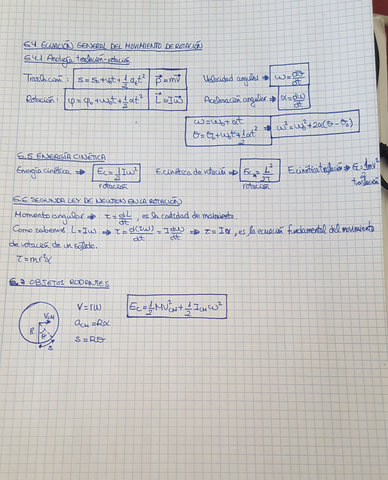 5.4 ECUACIÓN GENERAL DEL MOVIMIENTO DE ROTACIÓN
5.4.1 Analogía traslación-rotación
Traslación: s = s₀ + v₀t + 1/2 a₀t² p⃗ = mv⃗ Velocidad angular ⇒ ω = dθ/dt
Rotación: φ = φ₀ + ω₀t + 1/2 αt² L⃗ = Iω⃗ Aceleración angular ⇒ α = dω/dt
ω = ω₀ + αt
θ = θ₀ + ω₀t + 1/2 αt² ω² = ω₀² + 2α(θ - θ₀)
5.5 ENERGÍA CINÉTICA
Energía cinética ⇒ Ec = 1/2 Iω² E.cinética de rotación ⇒ Ec = L²/2I E.cinética traslación ⇒ E = 1/2 mv²
rotación rotación traslación
5.6 SEGUNDA LEY DE NEWTON EN LA ROTACIÓN
Momento angular ⇒ τ = dL/dt, es la cantidad de movimiento.
Como sabemos L = Iω ⇒ τ = d(Iω)/dt = I dω/dt ⇒ τ = Iα, es la ecuación fundamental del movimiento
de rotación de un sólido.
τ = mr²α
5.7 OBJETOS RODANTES
V = rω Ec = 1/2 MV²CM + 1/2 ICM ω²
VCM
aCM = Rα
R θ
S = Rθ
s